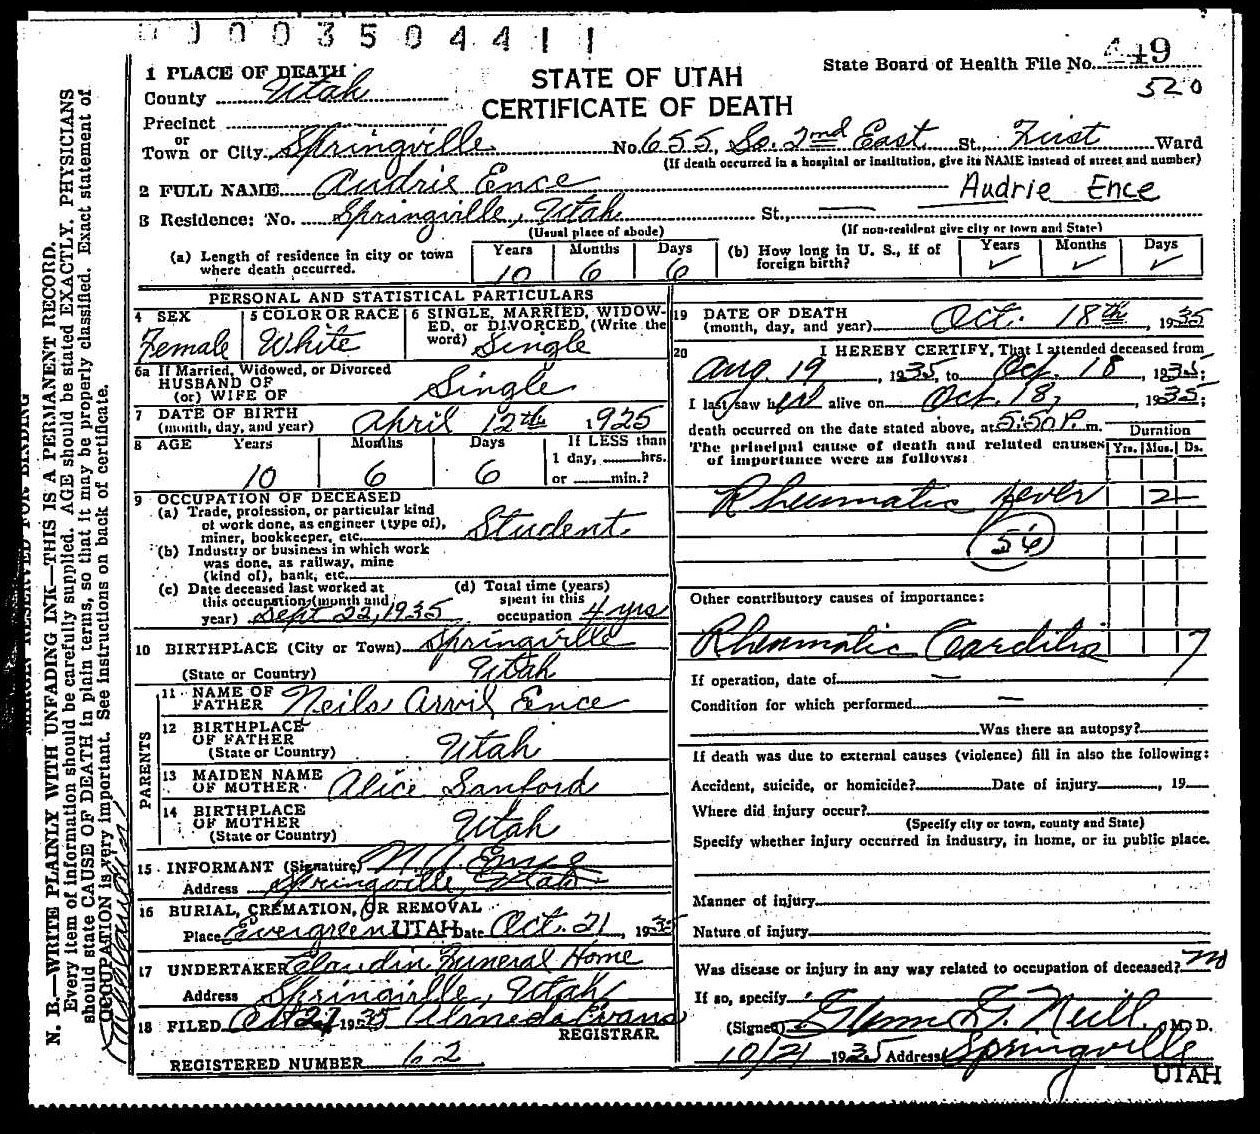 0 0 0 0 3 5 0 4 4 1 1
State Board of Health File No. 449
520
STATE OF UTAH
CERTIFICATE OF DEATH
1 PLACE OF DEATH
County Utah
Precinct
or
Town or City Springville No. 655, So. 2nd East St., First Ward
(If death occurred in a hospital or institution, give its NAME instead of street and number)
2 FULL NAME Audrie Ence Audrie Ence
3 Residence: No. Springville, Utah St.,
(Usual place of abode) (If non-resident give city or town and State)
(a) Length of residence in city or town where death occurred. Years 10 Months 6 Days 6
(b) How long in U. S., if of foreign birth? Years ✓ Months ✓ Days ✓
PERSONAL AND STATISTICAL PARTICULARS
4 SEX Female
5 COLOR OR RACE White
6 SINGLE, MARRIED, WIDOW-
ED, or DIVORCED, (Write the
word) Single
6a If Married, Widowed, or Divorced
HUSBAND OF
(or) WIFE OF Single
7 DATE OF BIRTH
(month, day, and year) April 12th 1925
8 AGE Years 10 Months 6 Days 6 If LESS than
1 day, hrs.
or min.?
9 OCCUPATION OF DECEASED
(a) Trade, profession, or particular kind
of work done, as engineer (type of),
miner, bookkeeper, etc. Student
(b) Industry or business in which work
was done, as railway, mine
(kind of), bank, etc.
(c) Date deceased last worked at
this occupation (month and
year) Sept 22, 1935
(d) Total time (years)
spent in this
occupation 4 yrs
10 BIRTHPLACE (City or Town) Springville
(State or Country) Utah
PARENTS
11 NAME OF
FATHER Neils Arvil Ence
12 BIRTHPLACE
OF FATHER
(State or Country) Utah
13 MAIDEN NAME
OF MOTHER Alice Sanford
14 BIRTHPLACE
OF MOTHER
(State or Country) Utah
15 INFORMANT (Signature) N. A. Ence
Address Springville, Utah
16 BURIAL, CREMATION, OR REMOVAL
Place Evergreen UTAH Date Oct. 21, 1935
17 UNDERTAKER Claudin Funeral Home
Address Springville, Utah
18 FILED Oct 21 1935 Almeda Evans
REGISTRAR
REGISTERED NUMBER 62
19 DATE OF DEATH
(month, day, and year) Oct. 18th, 1935
20 I HEREBY CERTIFY, That I attended deceased from
Aug. 19, 1935, to Oct. 18, 1935;
I last saw her alive on Oct. 18, 1935;
death occurred on the date stated above, at 5:50 P. m.
The principal cause of death and related causes
of importance were as follows:
Duration
Yrs. Mos. Ds.
Rheumatic fever 2
56
Other contributory causes of importance:
Rheumatic Carditis 7
If operation, date of —
Condition for which performed —
Was there an autopsy?
If death was due to external causes (violence) fill in also the following:
Accident, suicide, or homicide? Date of injury , 19
Where did injury occur?
(Specify city or town, county and State)
Specify whether injury occurred in industry, in home, or in public place.
Manner of injury
Nature of injury
Was disease or injury in any way related to occupation of deceased? no
If so, specify
(Signed) Glenn G. Neill, M. D.
10/21 1935 Address Springville
UTAH
MARGIN RESERVED FOR BINDING
N. B.—WRITE PLAINLY WITH UNFADING INK—THIS IS A PERMANENT RECORD.
Every item of information should be carefully supplied. AGE should be stated EXACTLY. PHYSICIANS
should state CAUSE OF DEATH in plain terms, so that it may be properly classified. Exact statement of
OCCUPATION is very important. See instructions on back of certificate.